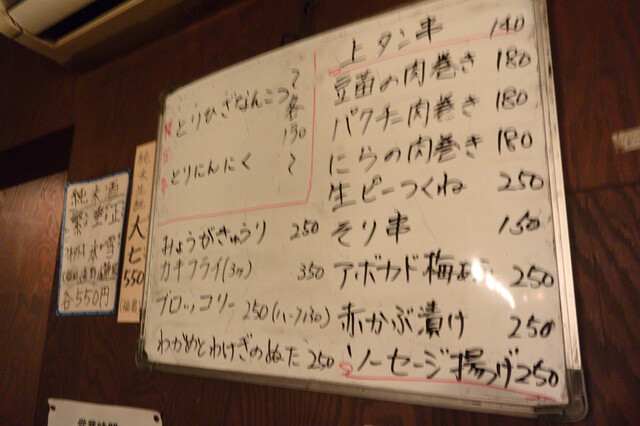 とりひざなんこつ
各
130
とりにんにく
みょうがきゅうり 250
カキフライ(3ケ) 350
ブロッコリー 250(ハーフ130)
わかめとわけぎのぬた 250
上タン串 140
豆苗の肉巻き 180
パクチー肉巻き 180
にらの肉巻き 180
生ピーつくね 250
そり串 150
アボカド梅 250
赤かぶ漬け 250
ソーセージ揚げ 250
純米
550
純米
各550円
営業時間